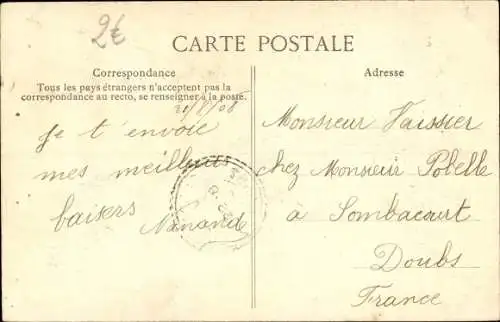 2€
CARTE POSTALE
Correspondance
Tous les pays étrangers n'acceptent pas la
correspondance au recto, se renseigner à la poste.
21/8/08
Je t'envoie
mes meilleurs
baisers
Nanande
Adresse
Monsieur Vaissier
chez Monsieur Pobelle
à Sombacourt
Doubs
France